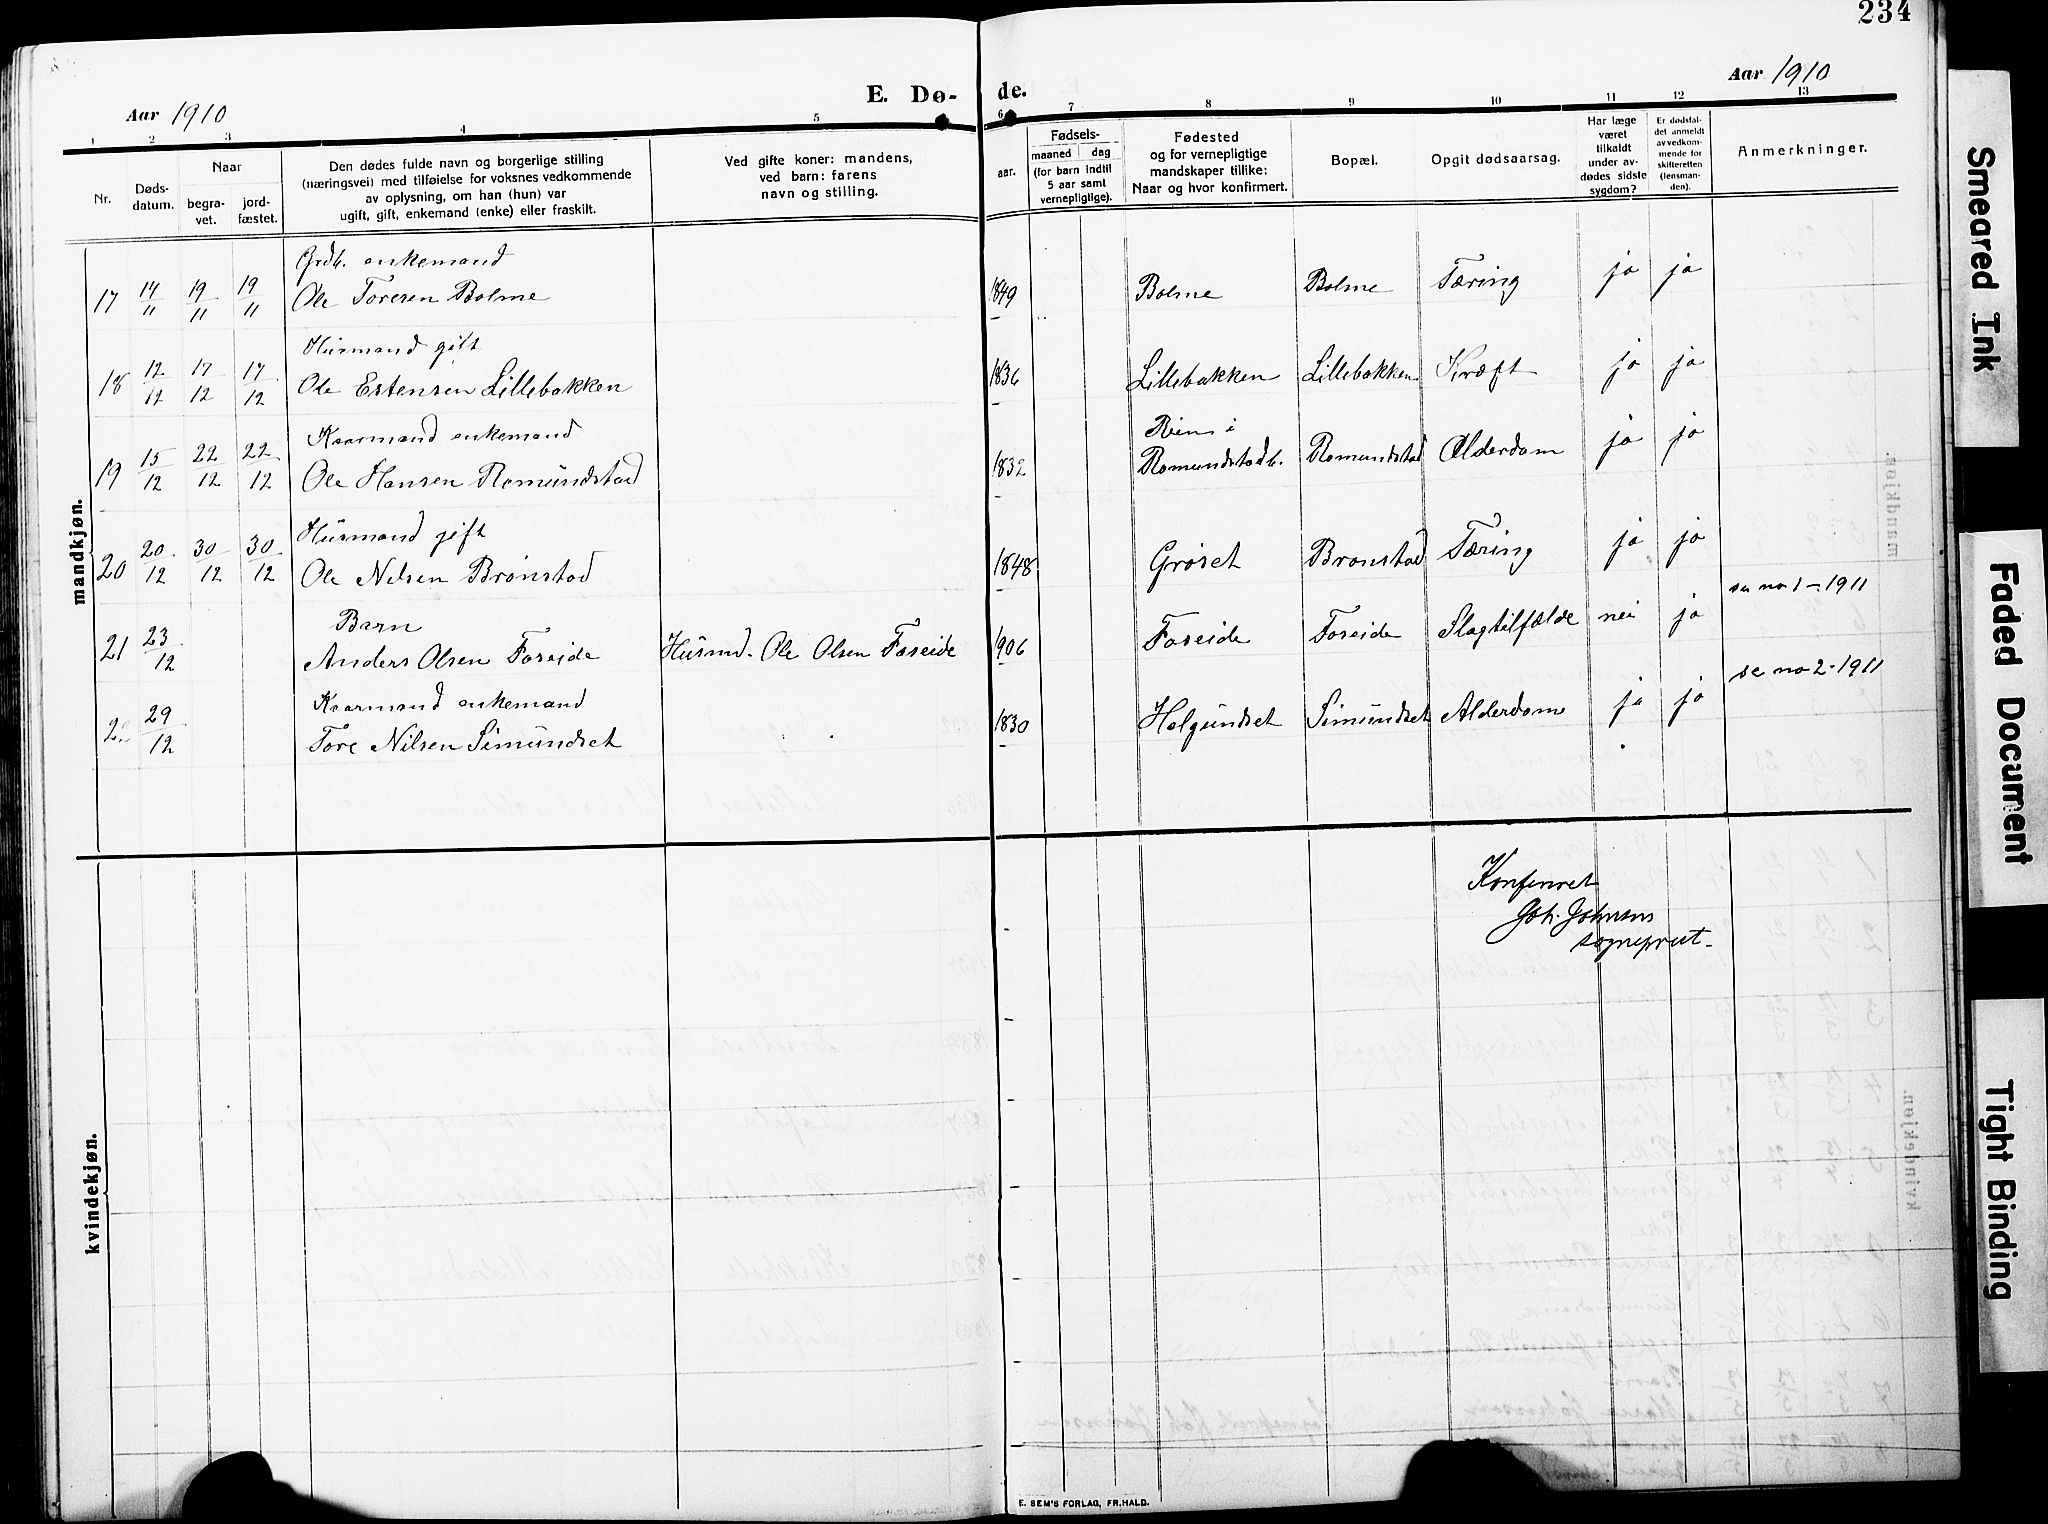 234
Aar 1910
E. Dø-
de.
Aar 1910
1 2 3 4 5 6 7 8 9 10 11 12 13
Nr.
Døds-
datum.
Naar
begra-
vet.
jord-
fæstet.
Den dødes fulde navn og borgerlige stilling
(næringsvei) med tilføielse for voksnes vedkommende
av oplysning, om han (hun) var
ugift, gift, enkemand (enke) eller fraskilt.
Ved gifte koner: mandens,
ved barn: farens
navn og stilling.
Fødsels-
aar.
maaned dag
(for barn indtil
5 aar samt
vernepligtige).
Fødested
og for vernepligtige
mandskaper tillike:
Naar og hvor konfirmert.
Bopæl.
Opgit dødsaarsag.
Har læge
været
tilkaldt
under av-
dødes sidste
sygdom?
Er dødsfal-
det anmeldt
av vedkom-
mende for
skifteretten
(lensman-
den).
Anmerkninger.
mandkjøn.
Grdb. enkemand
17 14/11 19/11 19/11 Ole Toresen Bolme 1849 Bolme Bolme Tæring ja ja
Husmand gift
18 12/12 17/12 17/12 Ole Estensen Lillebakken 1836 Lillebakken Lillebakken Kræft ja ja
Kaarmand enkemand
19 15/12 22/12 22/12 Ole Hansen Romundstad 1832 Reins i Romundstadb. Romundstad Alderdom ja ja
Husmand gift
20 20/12 30/12 30/12 Ole Nilsen Brønstad 1848 Grøset Brønstad Tæring ja ja
Barn
21 23/12 Anders Olsen Foseide Husmd. Ole Olsen Foseide 1906 Foseide Foseide Slagtilfælde nei ja se no 1 - 1911
Kaarmand enkemand
22 29/12 Tore Nilsen Simundset 1830 Holgundset Simundset Alderdom ja ja se no 2 - 1911
kvindekjøn.
Konferert
Joh. Johnsen
sogneprest
E. SEM'S FORLAG, FR.HALD.
Smeared Ink
Faded Document
Tight Binding